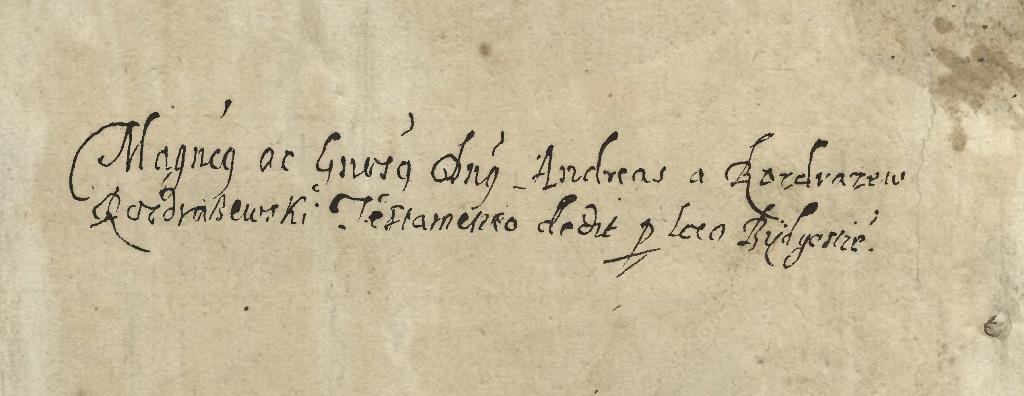 Magnicq ac Gnrsq Dnq Andreas a Rozdrazew
Rozdrażewski Testamento dedit p loco Bydgostie.